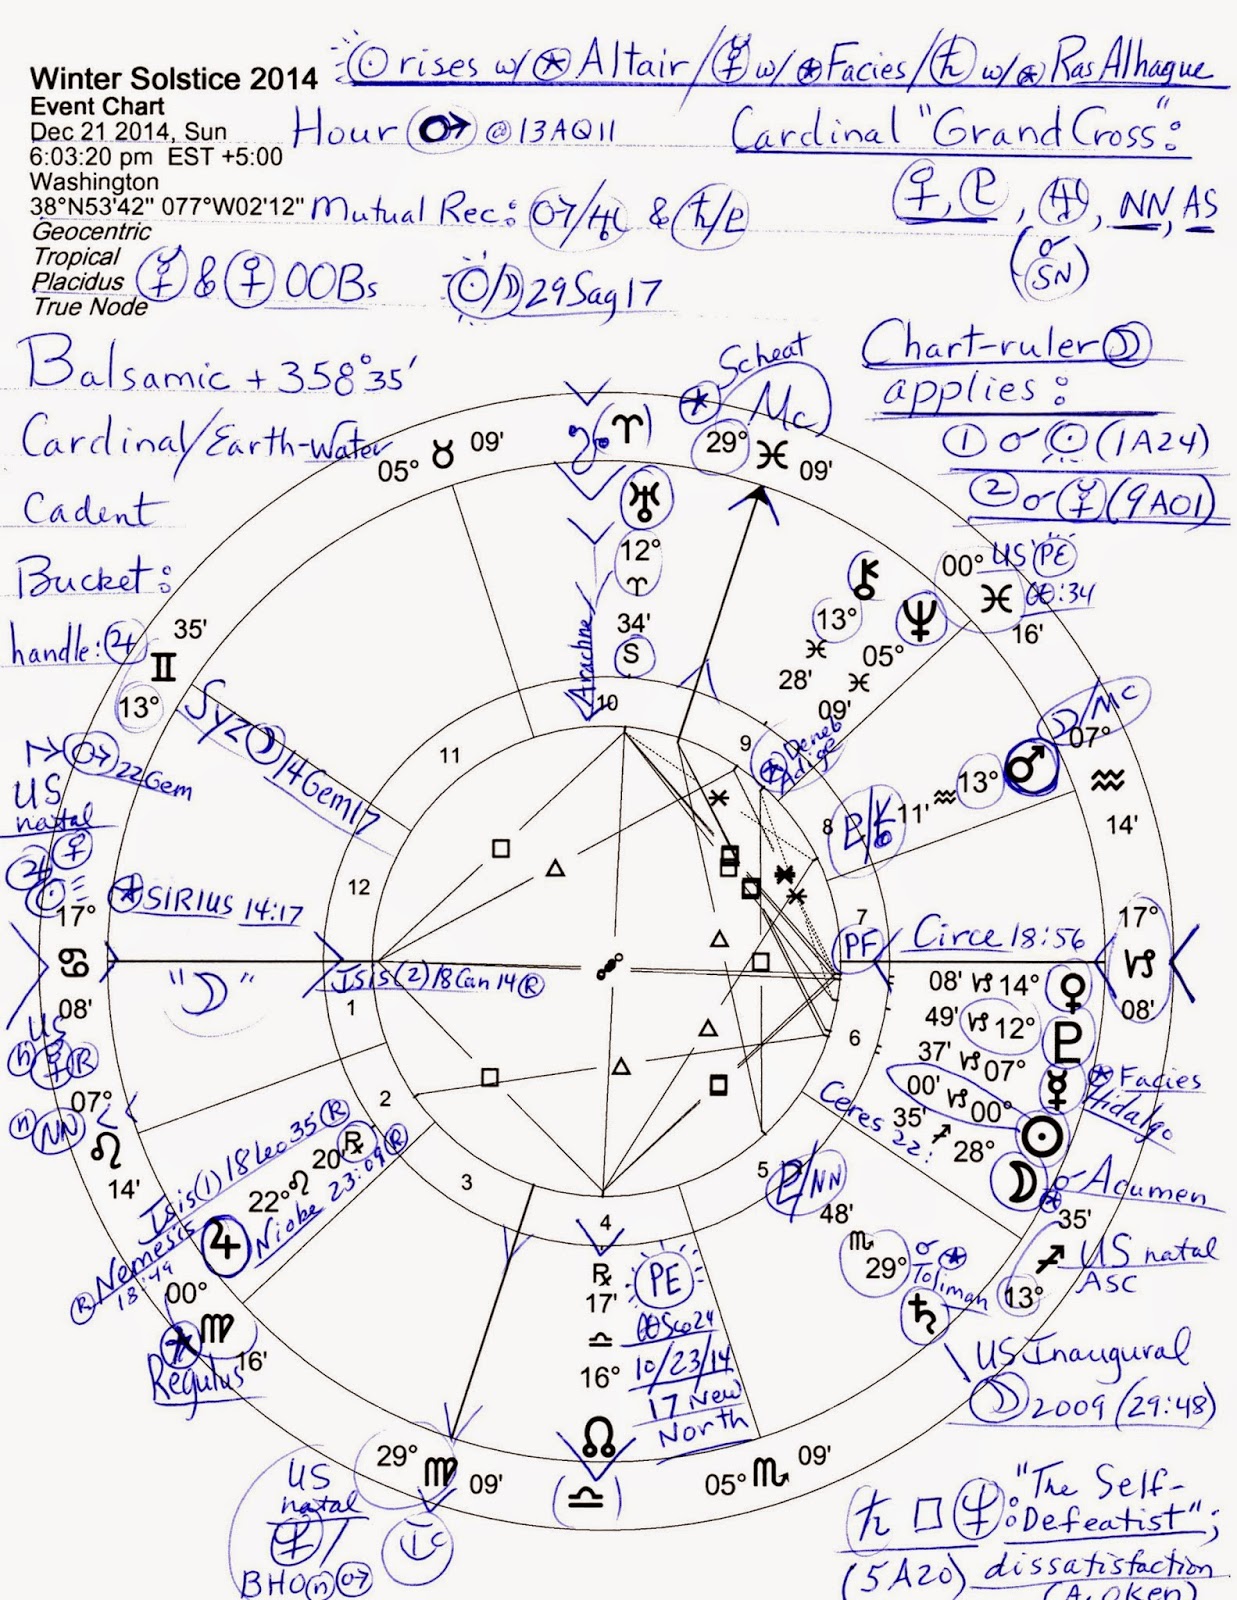 ☉ rises w/ ★ Altair / ☿ w/ ★ Facies / ♄ w/ ★ Ras Alhague
Winter Solstice 2014
Event Chart
Dec 21 2014, Sun
6:03:20 pm EST +5:00
Washington
38°N53'42" 077°W02'12"
Geocentric
Tropical
Placidus
True Node
Hour ♂ @ 13AQ11
Cardinal "Grand Cross":
♀, ♇, ♅, NN, AS
(☌ SN)
Mutual Rec: ♂/♅ & ♄/♇
☿ & ♀ OOBs
☉/☽ 29Sag17
Balsamic + 358°35'
Cardinal/Earth-Water
Cadent
Bucket:
handle: ♃
Chart-ruler ☽
applies:
① ☌ ☉ (1A24)
② ☌ ☿ (9A01)
Scheat
Mc
29° ♓ 09'
☋ (♈)
05° ♉ 09'
♅
12°
♈
34'
S
Arachne
00° US PE
♓ 00:34
16'
⚷
13°
♓
28'
♆
05°
♓
09'
Deneb
Adige
☽/MC
07°
♒
14'
♂ 13° ♒ 11'
35'
♊
13°
Syz ☽ 14Gem17
♂ 22Gem
US
natal
♃ ♀
☉
17°
♋
08'
SIRIUS 14:17
"☽"
Isis(2) 18Can14 ℞
US
(n) ☿ ℞
07°
(n) NN
♌
14'
PF
Circe 18:56
17°
♑
08'
08' ♑ 14° ♀
49' ♑ 12° ♇
37' ♑ 07° ☿
00' ♑ 00° ☉
35' ♐ 28° ☽
★ Facies
Hidalgo
Ceres 22:
☌ Acumen
35'
♐
13°
US natal
Asc
♇/NN
48'
♏
29°
♄
☌ ★
Toliman
US Inaugural
☽ 2009 (29:48)
Isis(1) 18Leo35 ℞
20' ℞
22° ♌
♃
Niobe 23:09 ℞
℞ Nemesis
18:49
00°
♍
16'
Regulus
10
11
12
1
2
3
4
5
6
7
8
9
℞
17'
♎
16°
☊
(♎)
PE
Sco24
10/23/14
17 New
North
29° ♍ 09'
Ic
05° ♏ 09'
US
natal
♆/
BHO (n) ♂
♄ □ ♆: "The Self-
Defeatist";
(5A20) dissatisfaction
(A. OKEN)